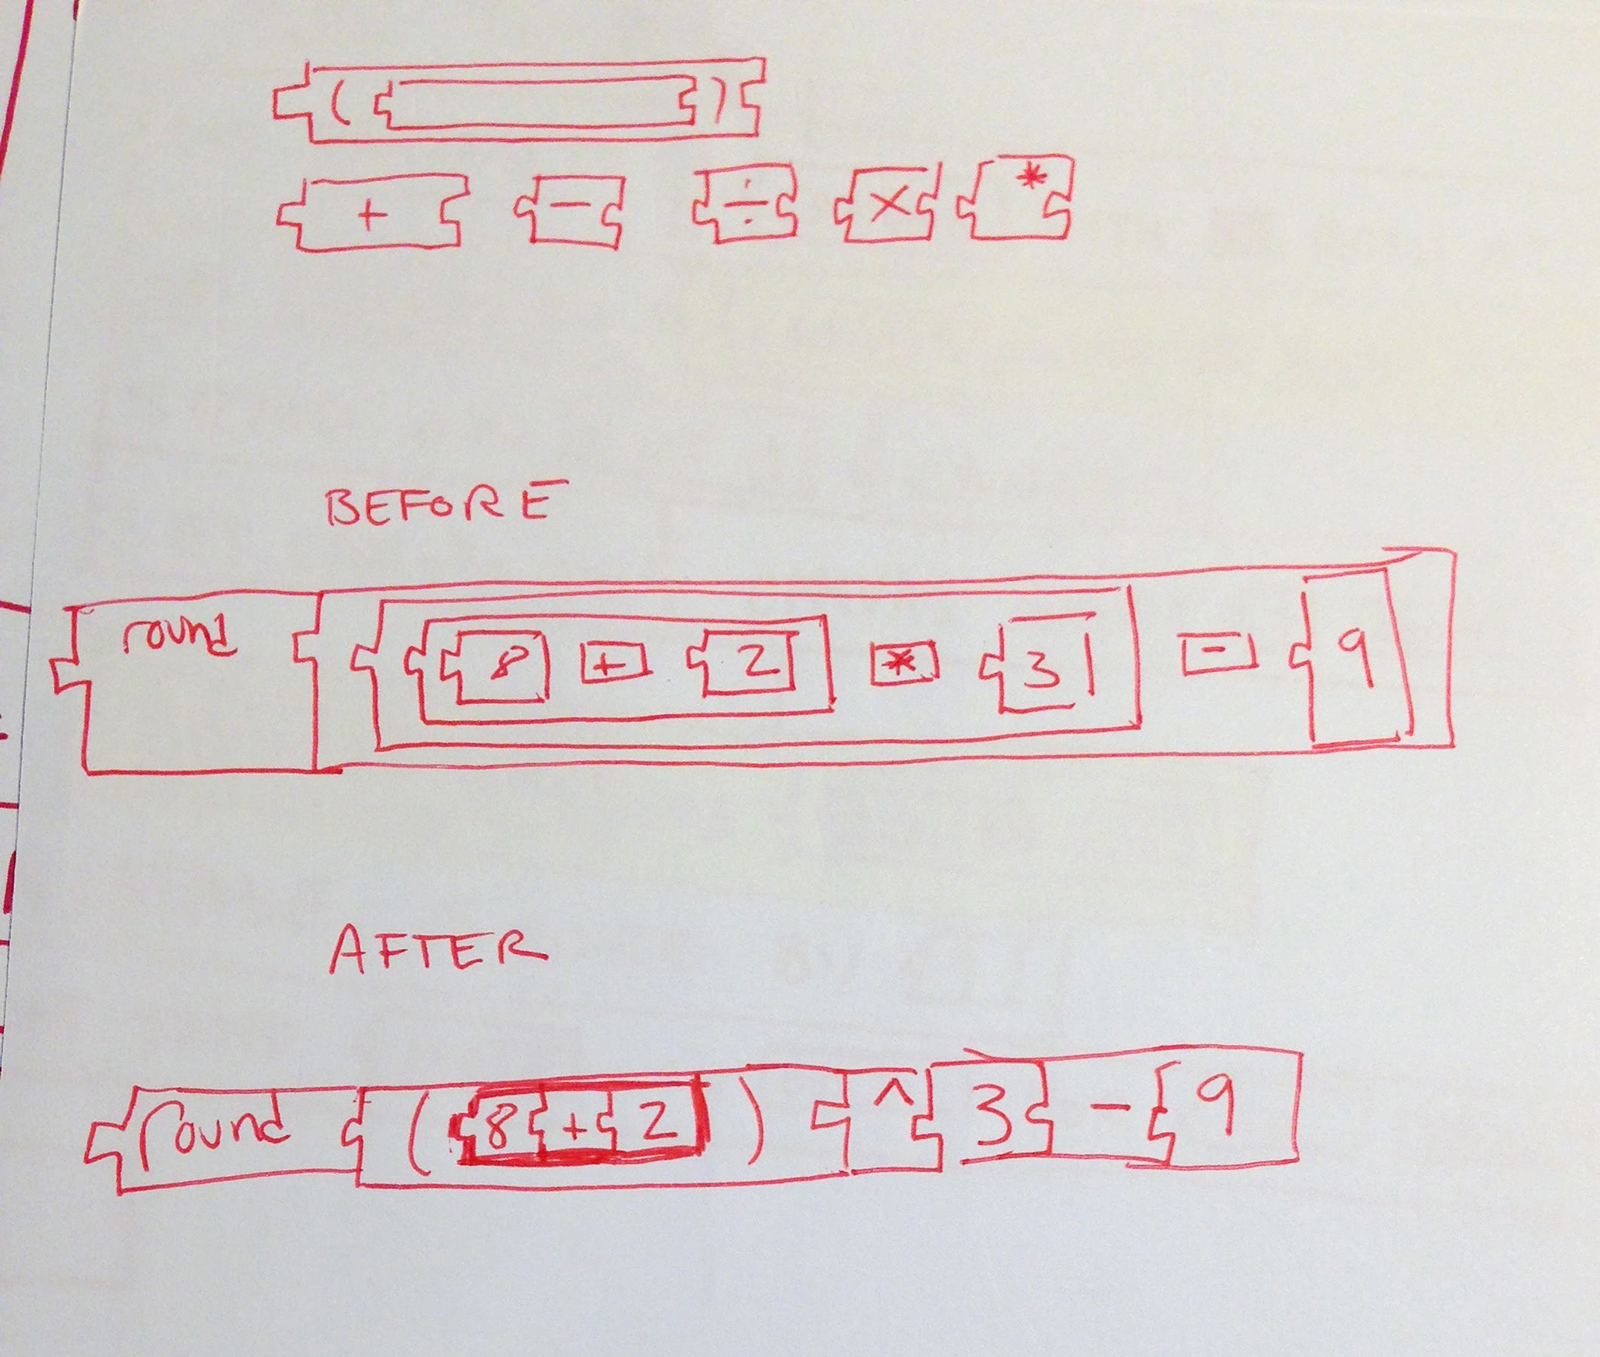 ( )
+ - ÷ × *
BEFORE
round 8 + 2 * 3 - 9
AFTER
round ( 8 + 2 ) ^ 3 - 9